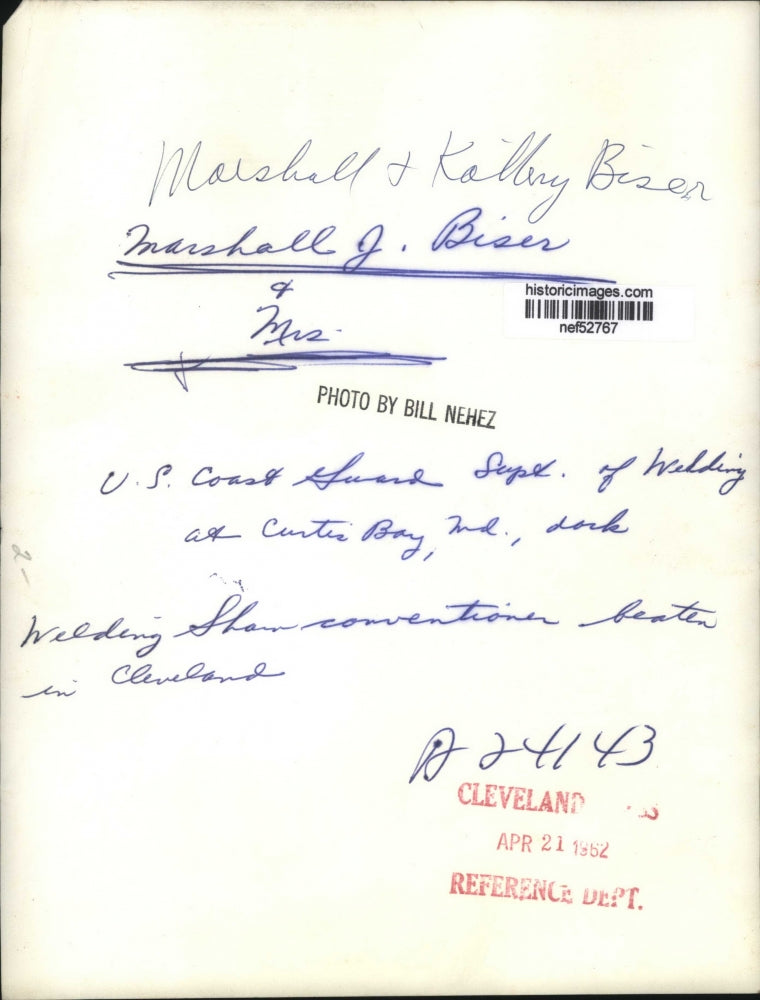 Marshall & Biser
Marshall J. Biser
&
Mrs.
historicimages.com
nef52767
PHOTO BY BILL NEHEZ
U.S. Coast Guard Supt. of Welding
at Curtis Bay, Md., dock
2-
Welding Show conventioner beaten
in Cleveland
A 24143
CLEVELAND SS
APR 21 1962
REFERENCE DEPT.